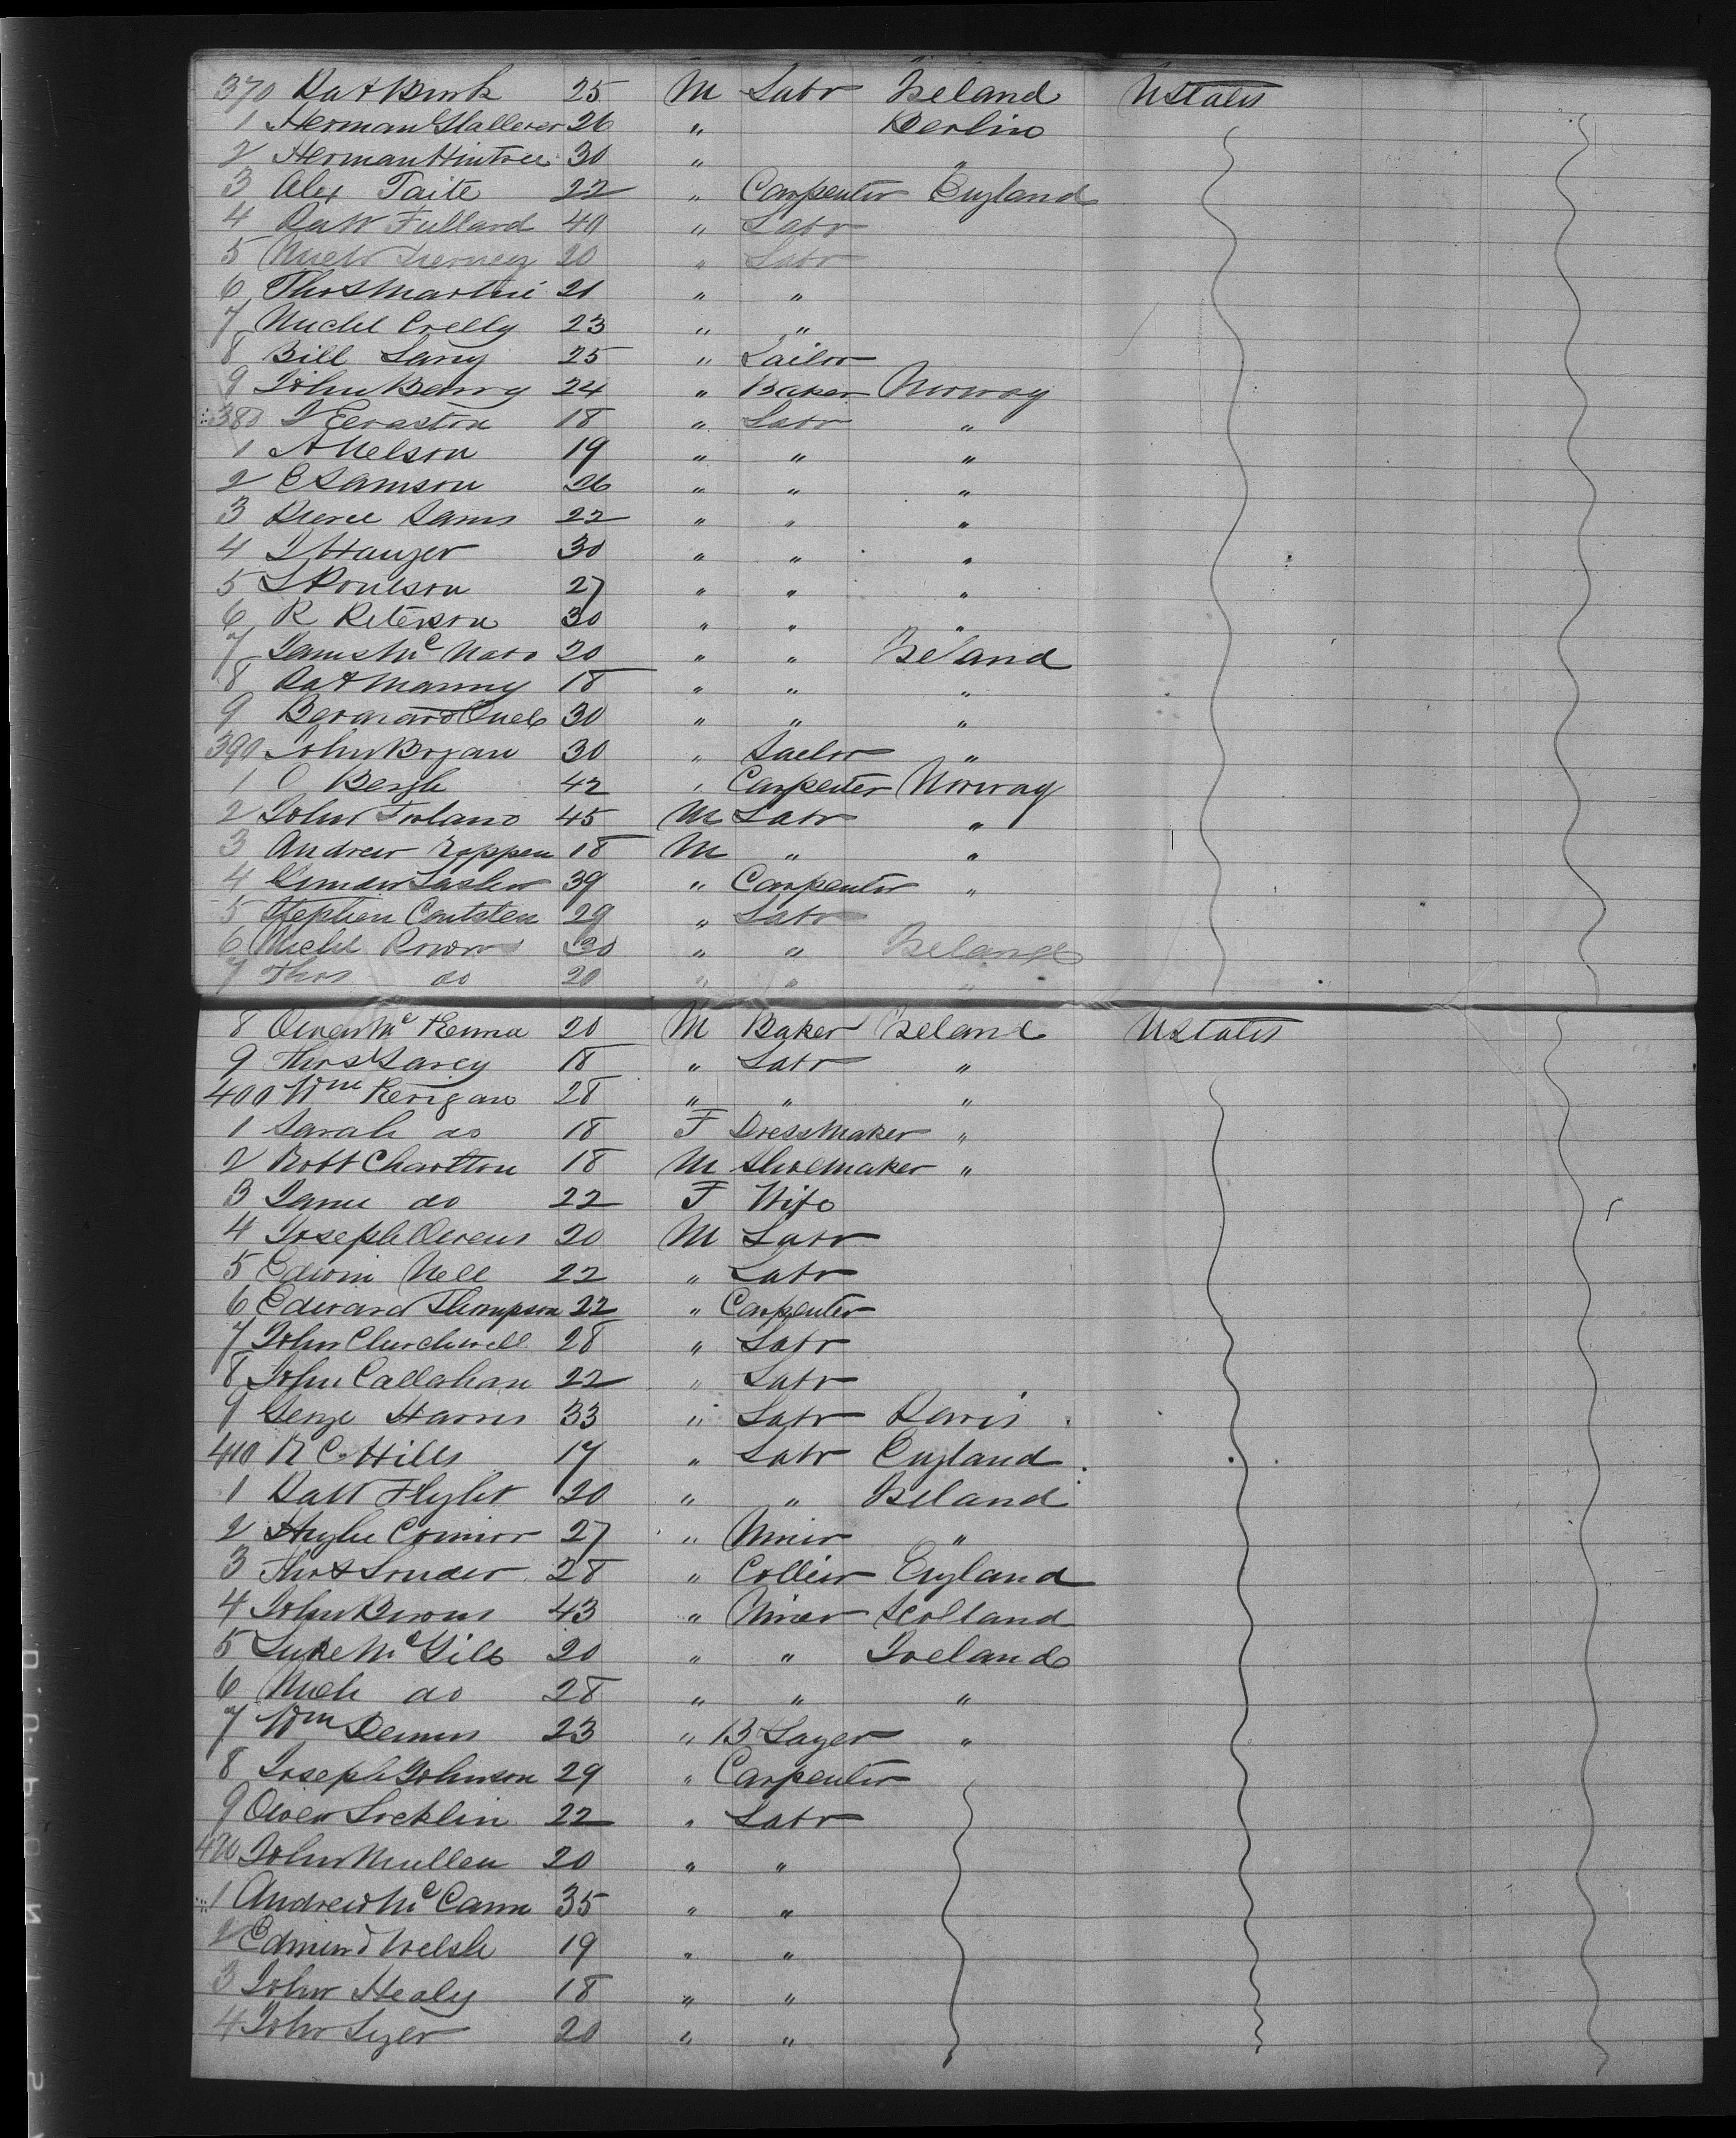 370 Pat Burk 25 M Labr Ireland U States
1 Herman 26 " Berlin
2 Herman 30 " "
3 Alex Taite 22 " Carpenter England
4 Patk Fullard 40 " Labr
5 Michl Tierney 20 " Labr
6 Thos Martin 21 " "
7 Michl Crelly 23 " "
8 Bill Lang 25 " Tailor
9 John Berry 24 " Baker Norway
380 18 " Labr "
1 A Nelson 19 " " "
2 E Samson 26 " " "
3 Pierce Sams 22 " " "
4 30 " " "
5 L Poulson 27 " " "
6 R Peterson 30 " " "
7 James Mc 20 " " Ireland
8 Pat Manny 18 " " "
9 Bernard 30 " " "
390 John Bogan 30 " Sailor "
1 O Bergh 42 " Carpenter Norway
2 John 45 M Labr "
3 Andrew 18 M " "
4 39 " Carpenter "
5 Stephen 29 " Labr
6 Michl 30 " " Ireland
7 Thos do 20 " " "
8 Owen Mc Kenna 20 M Baker Ireland U States
9 Thos 18 " Labr "
400 Wm Kerigan 28 " " "
1 Sarah do 18 F Dressmaker "
2 Robt Charlton 18 M Shoemaker "
3 Jane do 22 F Wife
4 Joseph Owens 20 M Labr
5 Edwin Nell 22 " Labr
6 Edward Thompson 22 " Carpenter
7 John Churchwell 28 " Labr
8 John Callahan 22 " Labr
9 George Harris 33 " Labr Paris
410 R C Hills 17 " Labr England
1 Patk 20 " " Ireland
2 Hugh Connor 27 " Miner "
3 Thos 28 " Collier England
4 John 43 " Miner Scotland
5 Luke Mc Gill 20 " " Ireland
6 Mich do 28 " " "
7 Wm Dennis 23 " B Layer "
8 Joseph Johnson 29 " Carpenter
9 Owen Locklin 22 " Labr
420 John Mullen 20 " "
1 Andrew Mc Cann 35 " "
2 Edmund Welsh 19 " "
3 John Healy 18 " "
4 John 20 " "